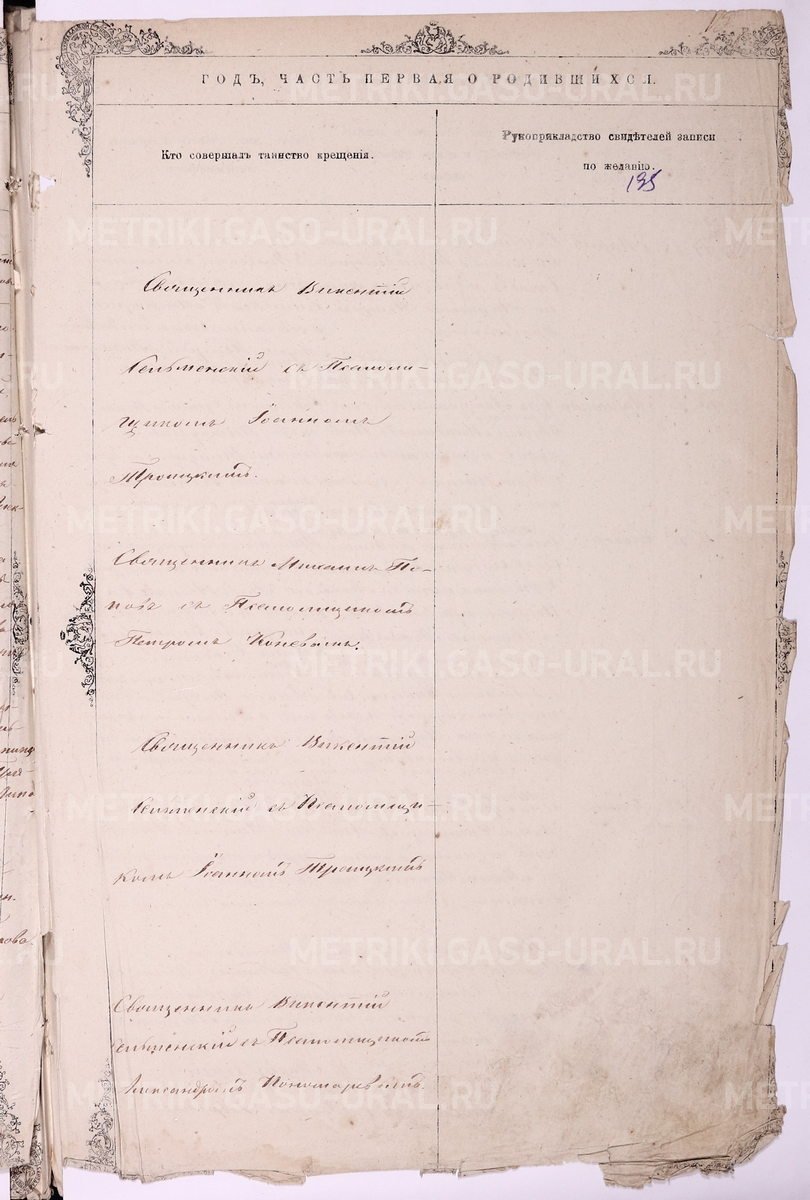 ГОДЪ, ЧАСТЬ ПЕРВАЯ О РОДИВШИХСЯ.
Кто совершалъ таинство крещенія.
Рукоприкладство свидѣтелей записи
по желанію.
135
Священникъ Викентій
съ Псаломщ-
щикомъ Іоанномъ
Троицкимъ.
Священникъ Михаилъ По-
повъ съ Псаломщикомъ
Петромъ
Священникъ Викентій
съ Псаломщи-
комъ Іоанномъ Троицкимъ
Священникъ Викентій
съ Псаломщикомъ
Александромъ Пономаревымъ.
METRIKI.GASO-URAL.RU